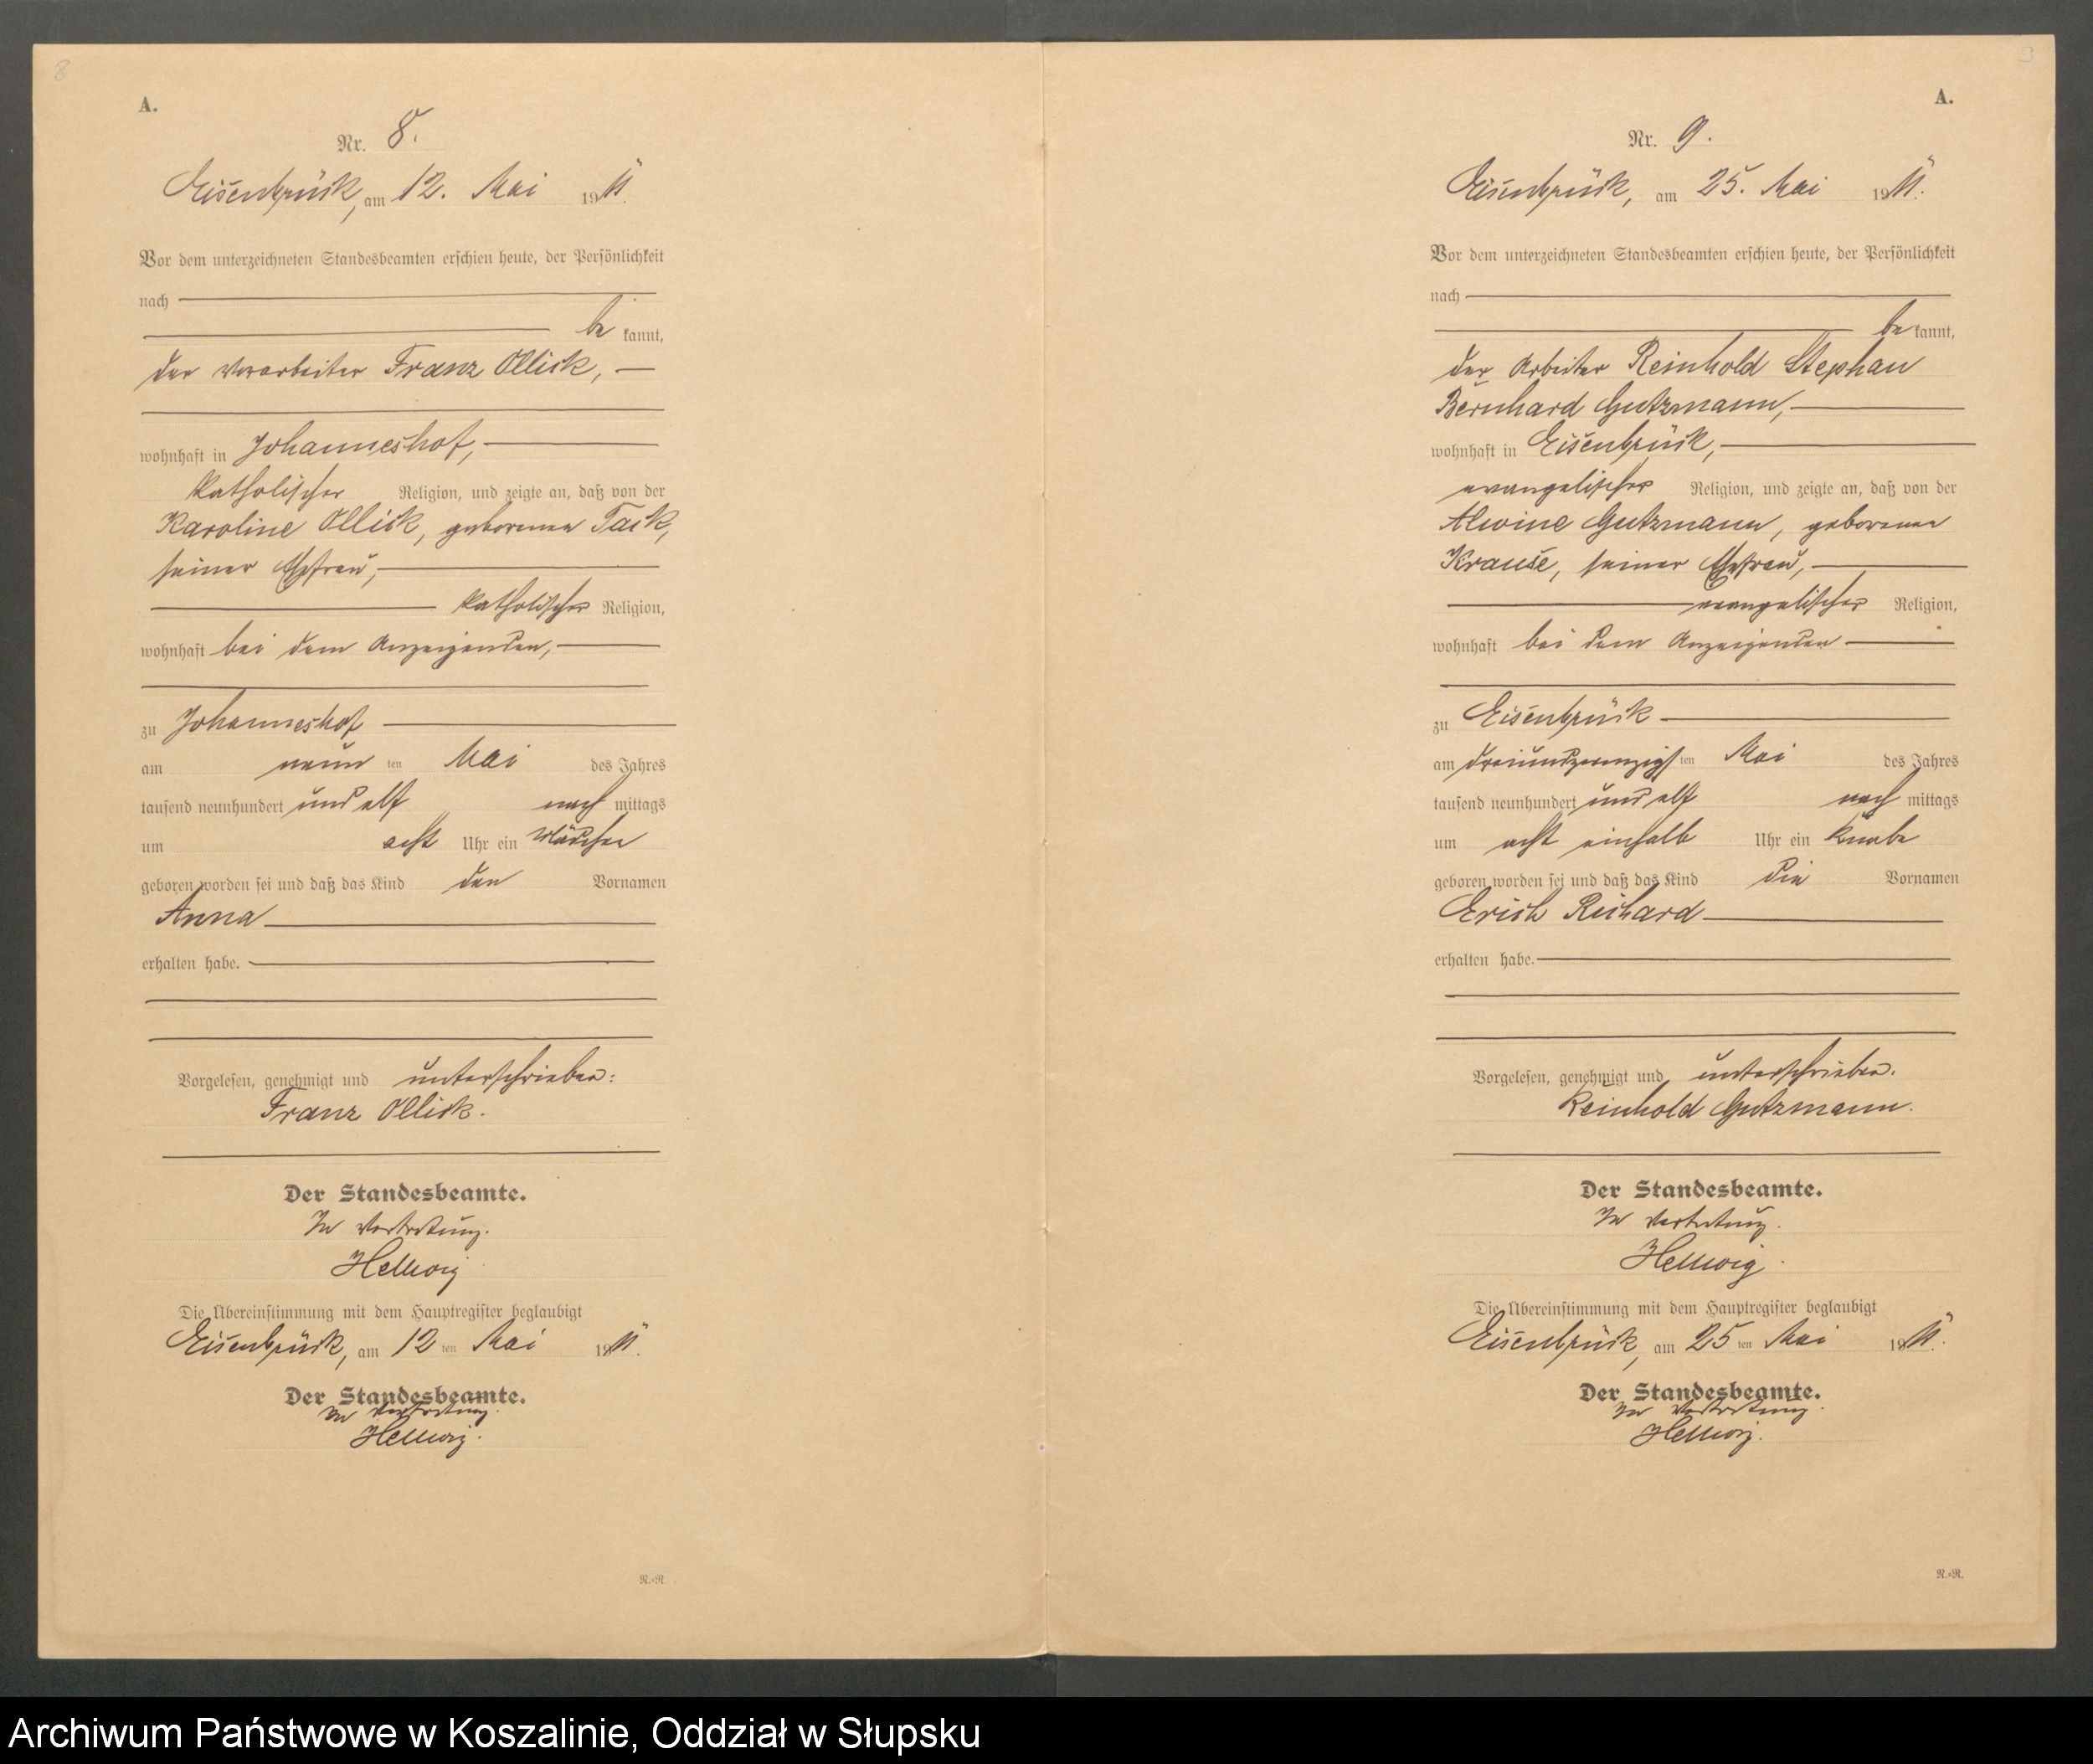 8
A.
Nr. 8.
Eisenbrück, am 12. Mai 1911.
Vor dem unterzeichneten Standesbeamten erschien heute, der Persönlichkeit
nach
be kannt,
der Vorarbeiter Franz Ollick,
wohnhaft in Johanneshof,
katholischer Religion, und zeigte an, daß von der
Karoline Ollick, geborenen Tack,
seiner Ehefrau,
katholischer Religion,
wohnhaft bei dem Anzeigenden,
zu Johanneshof
am neun ten Mai des Jahres
tausend neunhundert und elf nach mittags
um acht Uhr ein Mädchen
geboren worden sei und daß das Kind den Vornamen
Anna
erhalten habe.
Vorgelesen, genehmigt und unterschrieben:
Franz Ollick.
Der Standesbeamte.
In Vertretung.
Hellwig
Die Übereinstimmung mit dem Hauptregister beglaubigt
Eisenbrück, am 12 ten Mai 1911.
Der Standesbeamte.
In Vertretung.
Hellwig.
R.=R.
9
A.
Nr. 9.
Eisenbrück, am 25. Mai 1911.
Vor dem unterzeichneten Standesbeamten erschien heute, der Persönlichkeit
nach
be kannt,
der Arbeiter Reinhold Stephan
Bernhard Gutzmann,
wohnhaft in Eisenbrück,
evangelischer Religion, und zeigte an, daß von der
Alwine Gutzmann, geborenen
Krause, seiner Ehefrau,
evangelischer Religion,
wohnhaft bei dem Anzeigenden
zu Eisenbrück
am dreiundzwanzigs ten Mai des Jahres
tausend neunhundert und elf nach mittags
um acht einhalb Uhr ein Knabe
geboren worden sei und daß das Kind die Vornamen
Erich Richard
erhalten habe.
Vorgelesen, genehmigt und unterschrieben.
Reinhold Gutzmann.
Der Standesbeamte.
In Vertretung.
Hellwig.
Die Übereinstimmung mit dem Hauptregister beglaubigt
Eisenbrück, am 25 ten Mai 1911.
Der Standesbeamte.
In Vertretung.
Hellwig.
R.=R.
Archiwum Państwowe w Koszalinie, Oddział w Słupsku